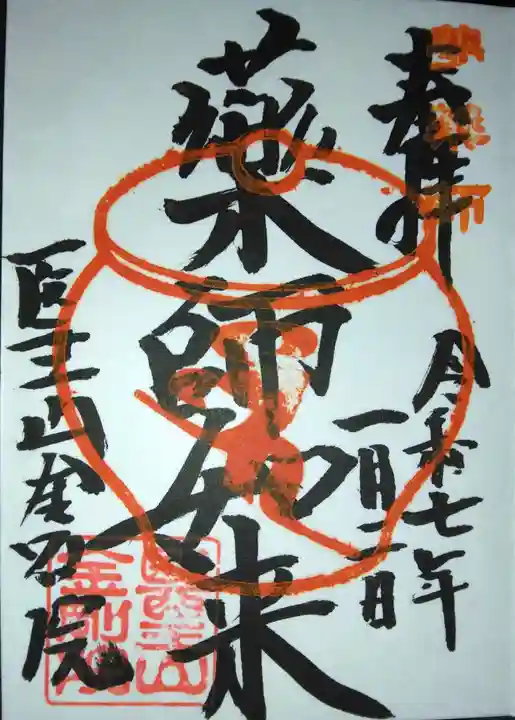 奉拝
令和七年
一月二日
薬師如来
医王山金剛院
醫王山
金剛院